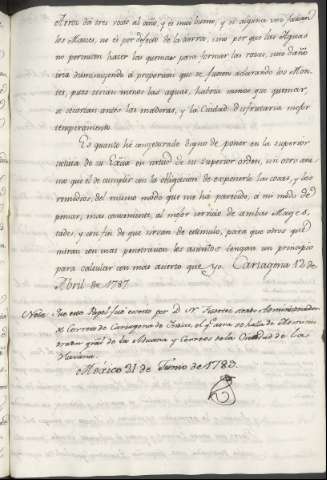 los Maices, no es por defecto de la tierra, sino por que las Aguas
no permiten hacer las quemas para formar las rosas, cuio daño
irá disminuyendo á proporcion que se fueren aclarando los Mon-
tes, pues serán menos las aguas, habrá menos que quemar,
se secarán antes las maderas, y la Ciudad disfrutaría mejor
temperamento.
Es quanto he conjeturado digno de poner en la superior
de su Exa en virtud de su superior orden, sin otro ani-
mo que el de cumplir con la obligacion de exponerle las cosas, y los
remedios del mismo modo que me ha parecido, a mi modo de
pensar, mas conveniente, al mejor servicio de ambas Mages-
tades, y con fin de que sirvan de estimulo, para que otros que
miran con mas penetracion los asuntos tengan un principio
para calcular con mas acierto que yo. Cartagena 12 de
Abril de 1787.
Nota. Que este Papel fué escrito por D. Administrador
de Correos de Cartagena de Indias, el qual se halla de
gral de la Aduana y Correos de la Ciudad de la
Havana.
Mexico 21 de Junio de 1789.